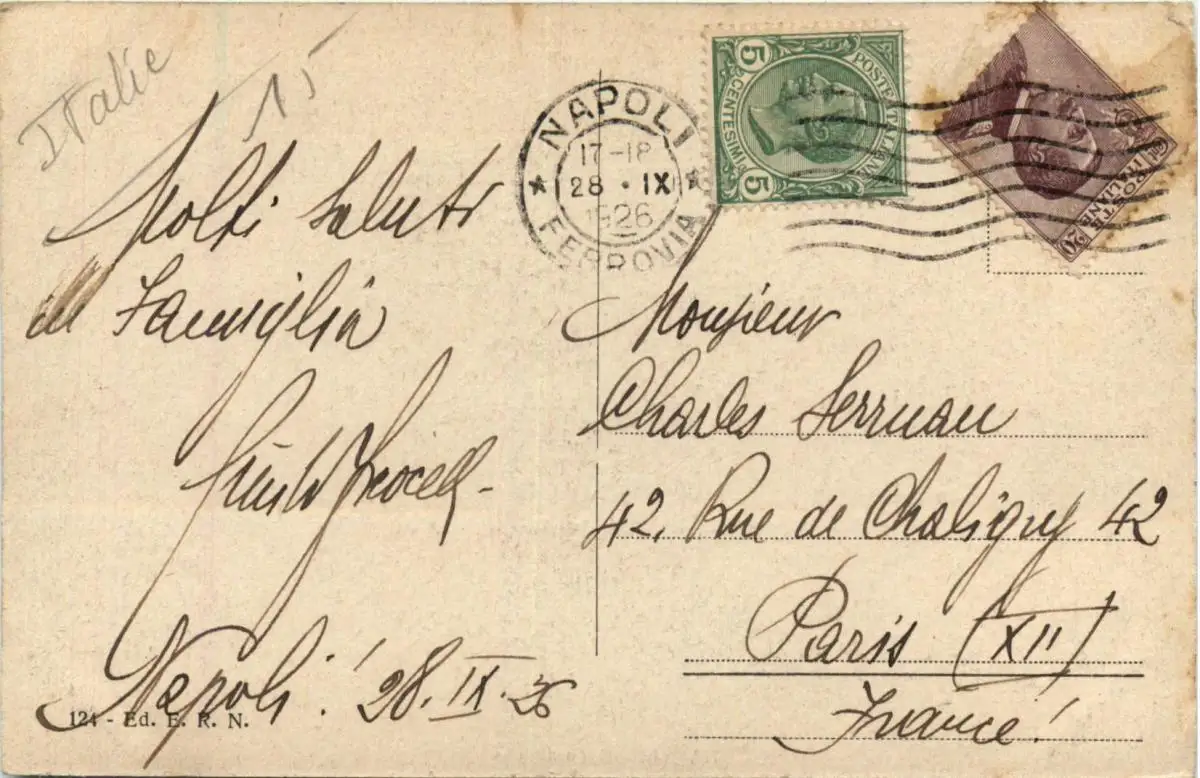 Italie
15
Molti saluti
in Famiglia
Napoli! 28. IX. 26
124 - Ed. E. R. N.
NAPOLI
17-18
28 · IX
1926
FERROVIA
5 5
CENTESIMI
POSTE ITALIANE
POSTE
ITALIANE
20
Monsieur
Charles
42, Rue de Chaligny 42
Paris (XII)
France!